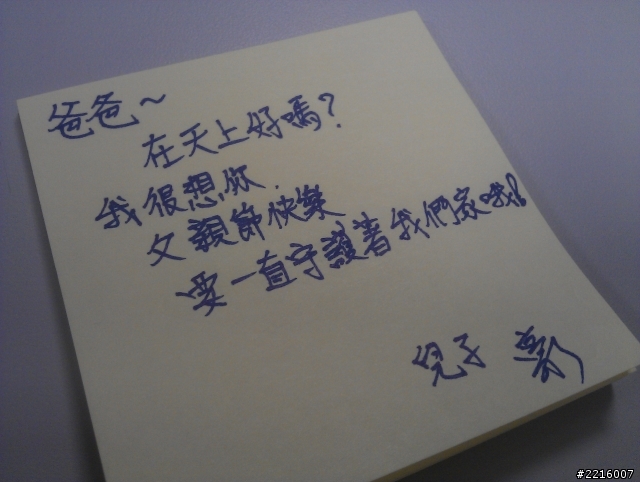 爸爸~
在天上好嗎?
我很想你.
父親節快樂
要一直守護著我們家哦!
兒子
#2216007